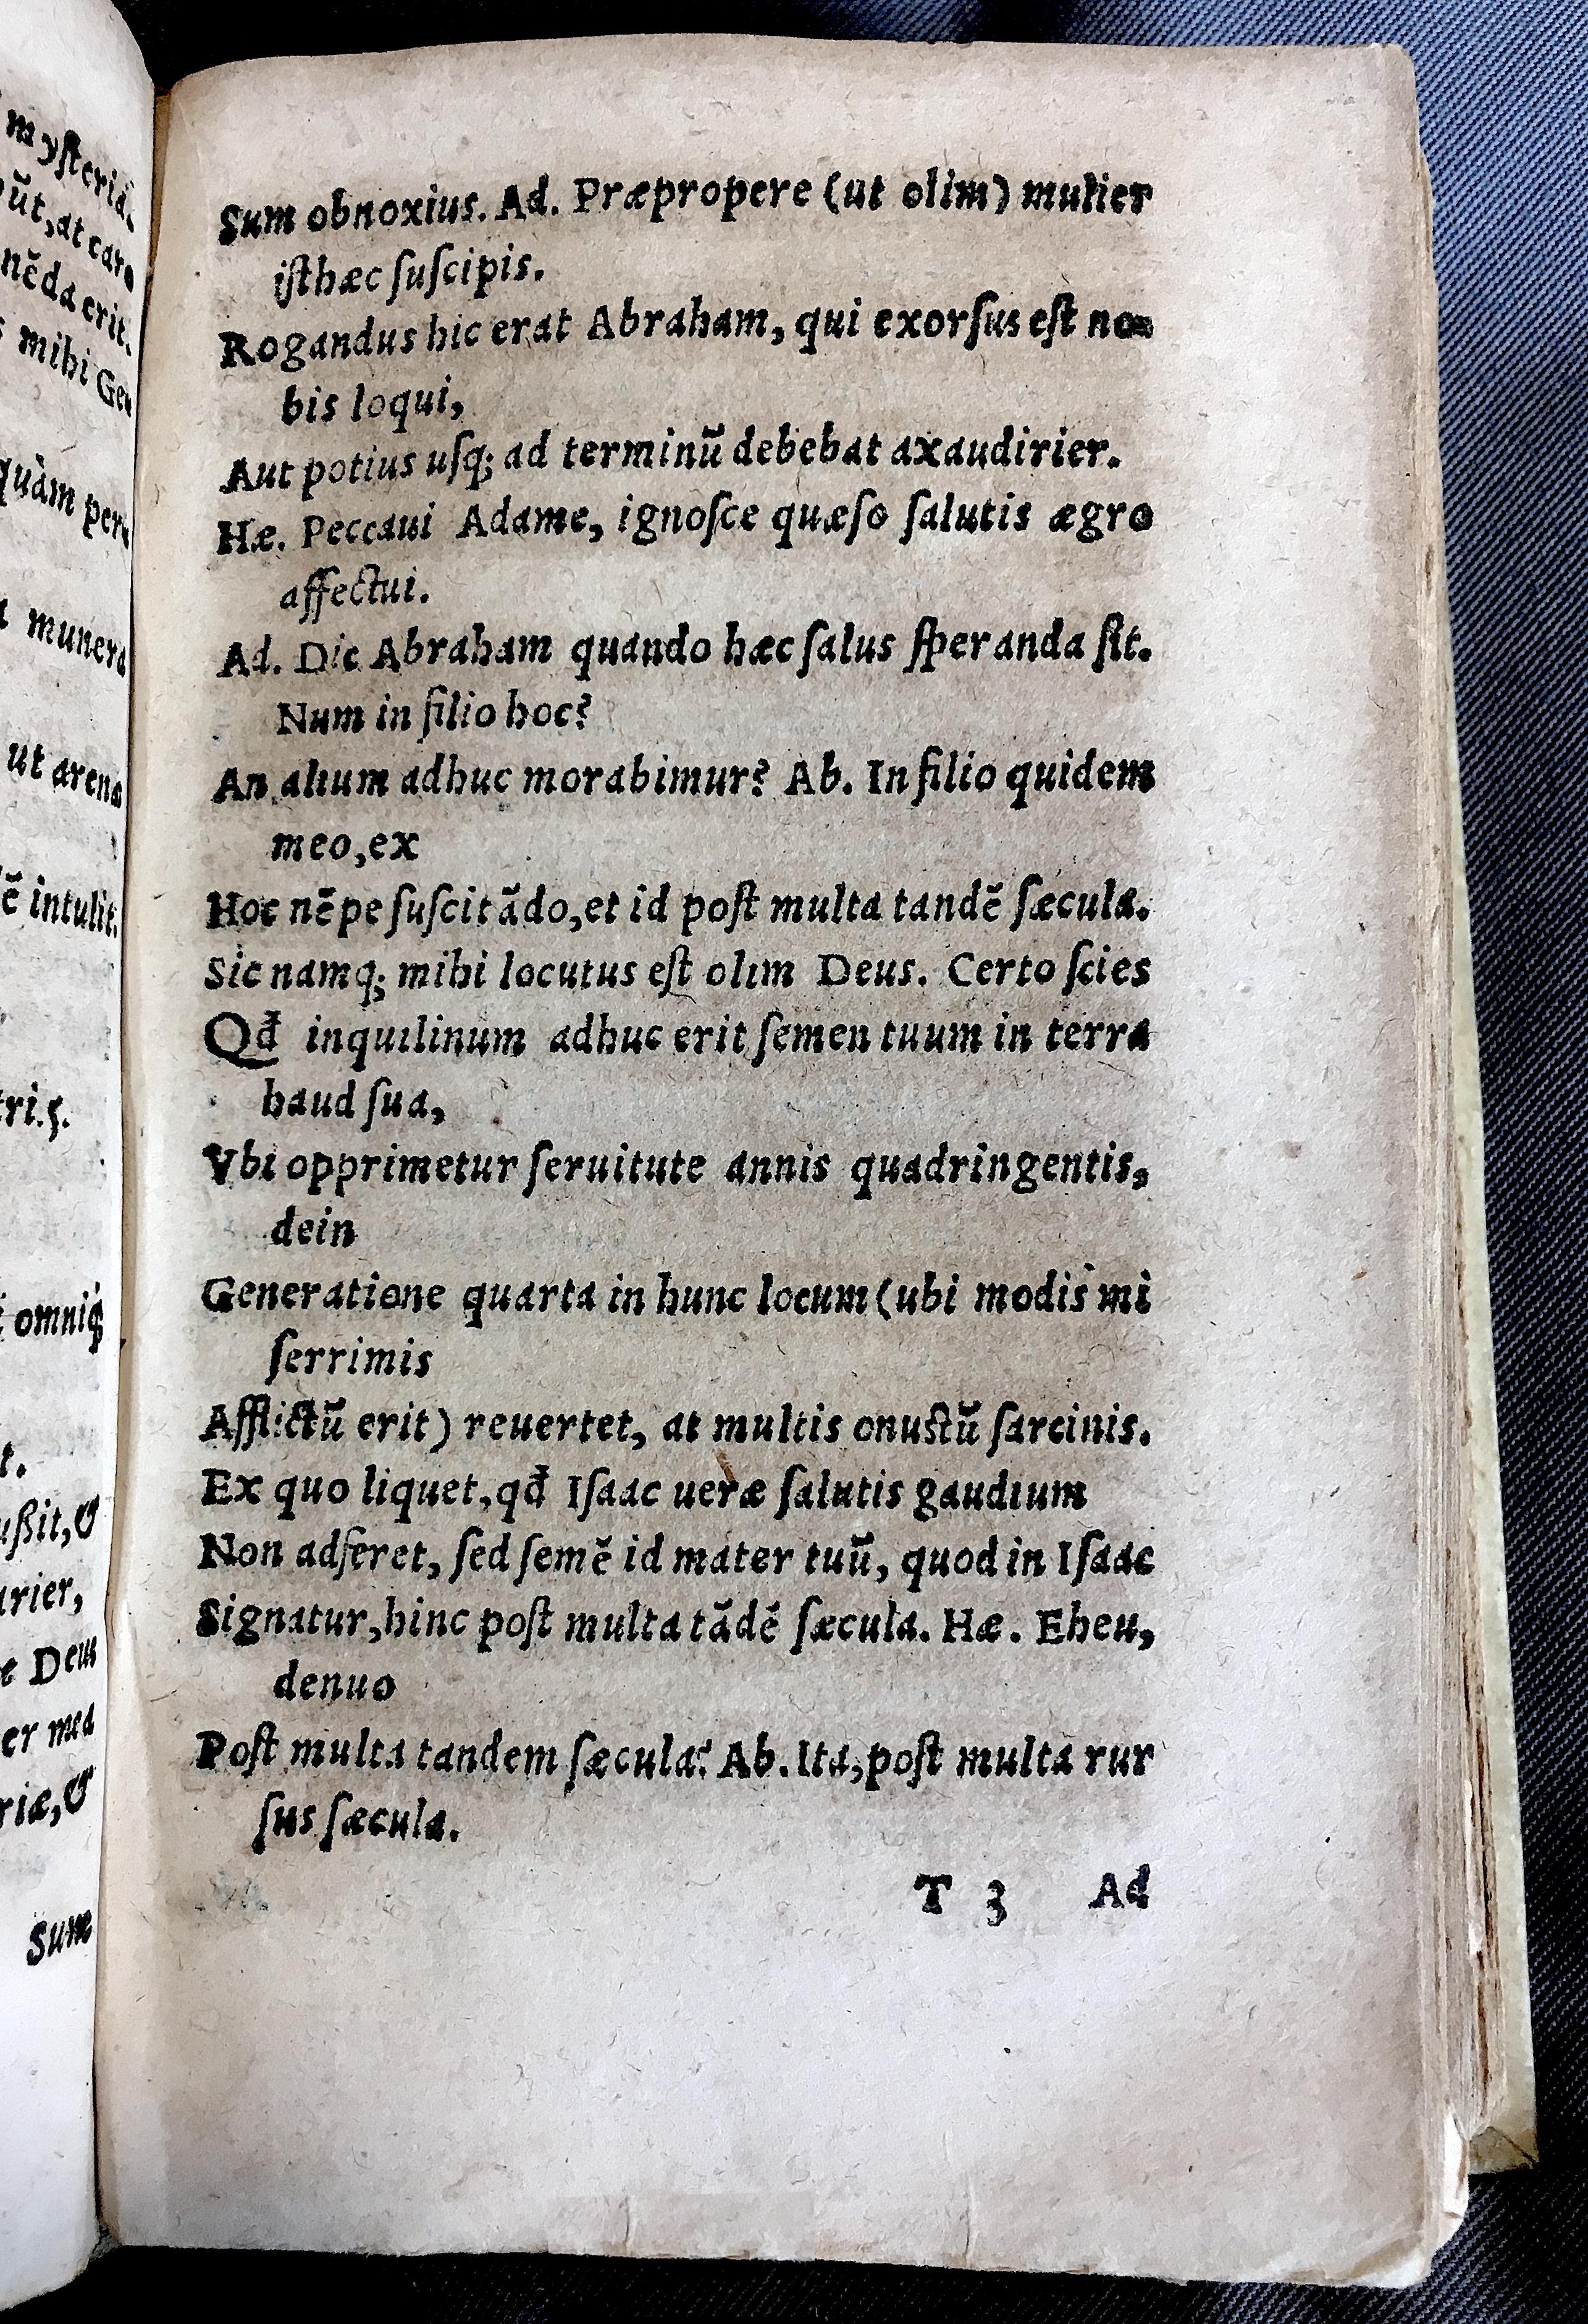 mysteria.
ūt, at caro
nēda erit.
mihi Gen
quàm peri
munera
ut arena
ē intulit.
tri.ς.
omniq;
t.
ußit, &
urier,
e Deus
er mea
riæ, &
Sum
Sum obnoxius. Ad. Præpropere (ut olim) mulier
iſthæc ſuſcipis.
Rogandus hic erat Abraham, qui exorſus eſt no=
bis loqui,
Aut potius uſq; ad terminū debebat axaudirier.
Hæ. Peccaui Adame, ignoſce quæſo ſalutis ægro
affectui.
Ad. Dic Abraham quando hæc ſalus ſperanda ſit.
Num in filio hoc?
An alium adhuc morabimur? Ab. In filio quidem
meo, ex
Hoc nēpe ſuſcitādo, et id poſt multa tandē ſæcula.
Sic namq; mihi locutus eſt olim Deus. Certo ſcies
Qđ inquilinum adhuc erit ſemen tuum in terra
haud ſua,
Vbi opprimetur ſeruitute annis quadringentis,
dein
Generatione quarta in hunc locum (ubi modis mi
ſerrimis
Afflictū erit) reuertet, at multis onuſtū ſarcinis.
Ex quo liquet, qđ Iſaac ueræ ſalutis gaudium
Non adferet, ſed ſemē id mater tuū, quod in Iſaac
Signatur, hinc poſt multa tādē ſæcula. Hæ. Eheu,
denuo
Poſt multa tandem ſæcula? Ab. Ita, poſt multa rur
ſus ſæcula.
T 3 Ad